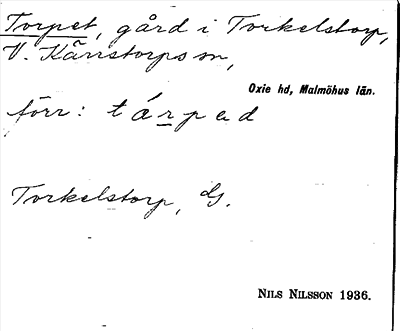 Torpet, gård i Torkelstorp,
V. Kärrstorps sn,
Oxie hd, Malmöhus län.
förr: tárpad
Torkelstorp,
NILS NILSSON 1936.